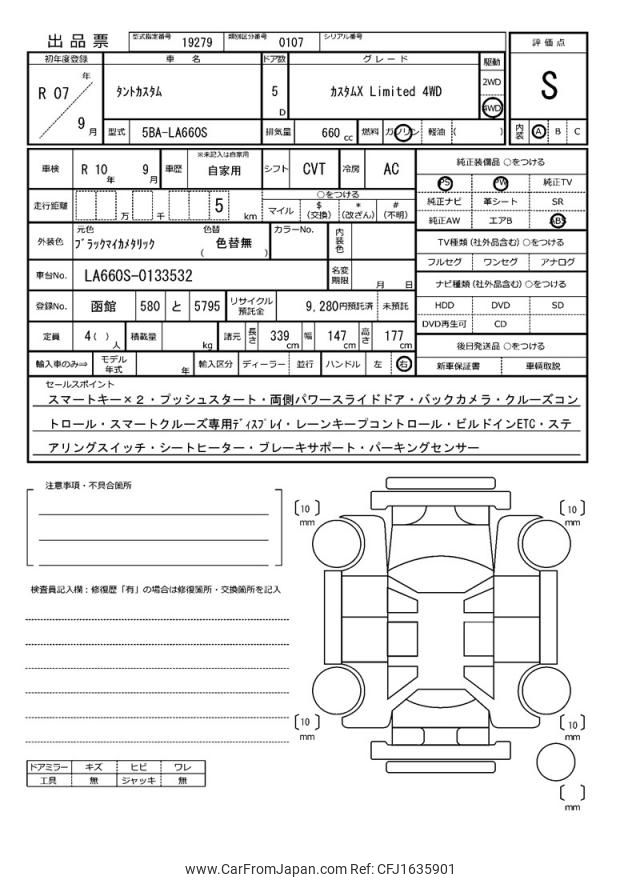 出品票 型式指定番号 19279 類別区分番号 0107 シリアル番号
初年度登録 車名 ドア数 グレード 駆動 評価点
R 07 年 9 月 タントカスタム 5 D カスタムX Limited 4WD 2WD 4WD S
型式 5BA-LA660S 排気量 660 cc 燃料 ガソリン 軽油 ( ) 内装 A B C
車検 R 10 年 9 月 車歴 ※未記入は自家用 自家用 シフト CVT 冷房 AC 純正装備品 ○をつける
PS PW 純正TV
走行距離 万 千 5 km ○をつける
マイル $ (交換) * (改ざん) # (不明)
純正ナビ 革シート SR
純正AW エアB ABS
外装色 元色 ブラックマイカメタリック 色替 ( 色替無 ) カラーNo. 内装色
TV種類 (社外品含む) ○をつける
フルセグ ワンセグ アナログ
車台No. LA660S-0133532 名変期限 月 日
ナビ種類 (社外品含む) ○をつける
登録No. 函館 580 と 5795 リサイクル預託金 9,280円預託済 未預託
HDD DVD SD
DVD再生可 CD
定員 4( ) 人 積載量 kg 諸元 長さ 339 cm 幅 147 cm 高さ 177 cm
後日発送品 ○をつける
輸入車のみ⇒ モデル年式 年 輸入区分 ディーラー 並行 ハンドル 左 右
新車保証書 車輌取説
セールスポイント
スマートキー×2・プッシュスタート・両側パワースライドドア・バックカメラ・クルーズコン
トロール・スマートクルーズ専用ディスプレイ・レーンキープコントロール・ビルドインETC・ステ
アリングスイッチ・シートヒーター・ブレーキサポート・パーキングセンサー
注意事項・不具合箇所
[10] mm
[10] mm
検査員記入欄：修復歴「有」の場合は修復箇所・交換箇所を記入
[10] mm
[10] mm
ドアミラー キズ ヒビ ワレ
工具 無 ジャッキ 無
[ ] mm
www.CarFromJapan.com Ref: CFJ1635901